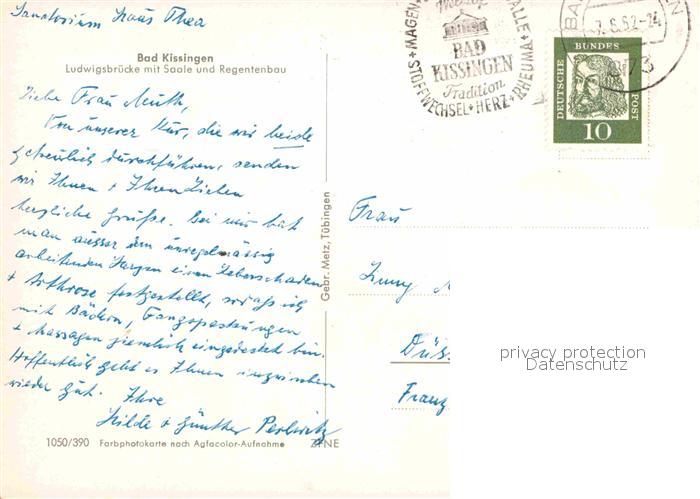 Sanatorium Haus Thea
Bad Kissingen
Ludwigsbrücke mit Saale und Regentenbau
Liebe Frau Muth,
Von unserer Kur, die wir beide
getreulich durchführen, senden
wir Ihnen + Ihren Lieben
herzliche Grüße. Bei mir hat
man ausser dem unregelmässig
arbeitenden Herzen einen Leberschaden
+ Arthrose festgestellt, sodaß ich
mit Bädern, Fangopackungen
+ Massagen ziemlich eingedeckt bin.
Hoffentlich geht es Ihnen inzwischen
wieder gut. Ihre
Hilde + Günther
1050/390 Farbphotokarte nach Agfacolor-Aufnahme ZFNE
Gebr. Metz, Tübingen
MAGEN
STOFFWECHSEL * HERZ * RHEUMA
BAD
KISSINGEN
Tradition
BA
.6.62-14
DEUTSCHE BUNDES POST
10
Frau
Düs
Franz
privacy protection
Datenschutz